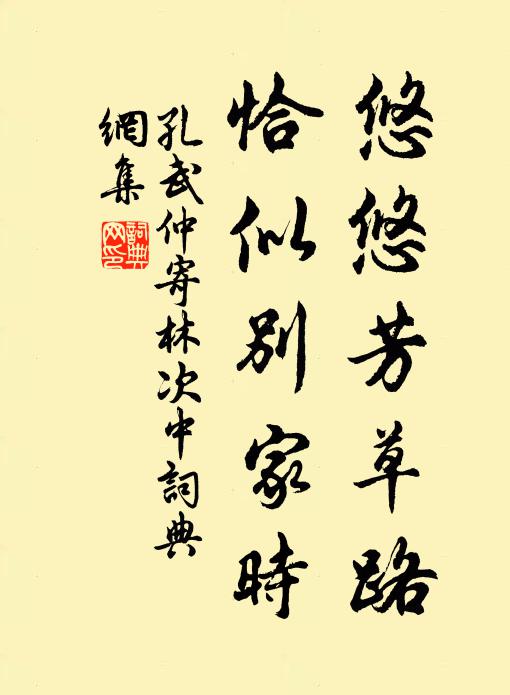 悠悠芳草路
恰似别家時
孔武仲寄林次中詞典
網集
詞典
网印